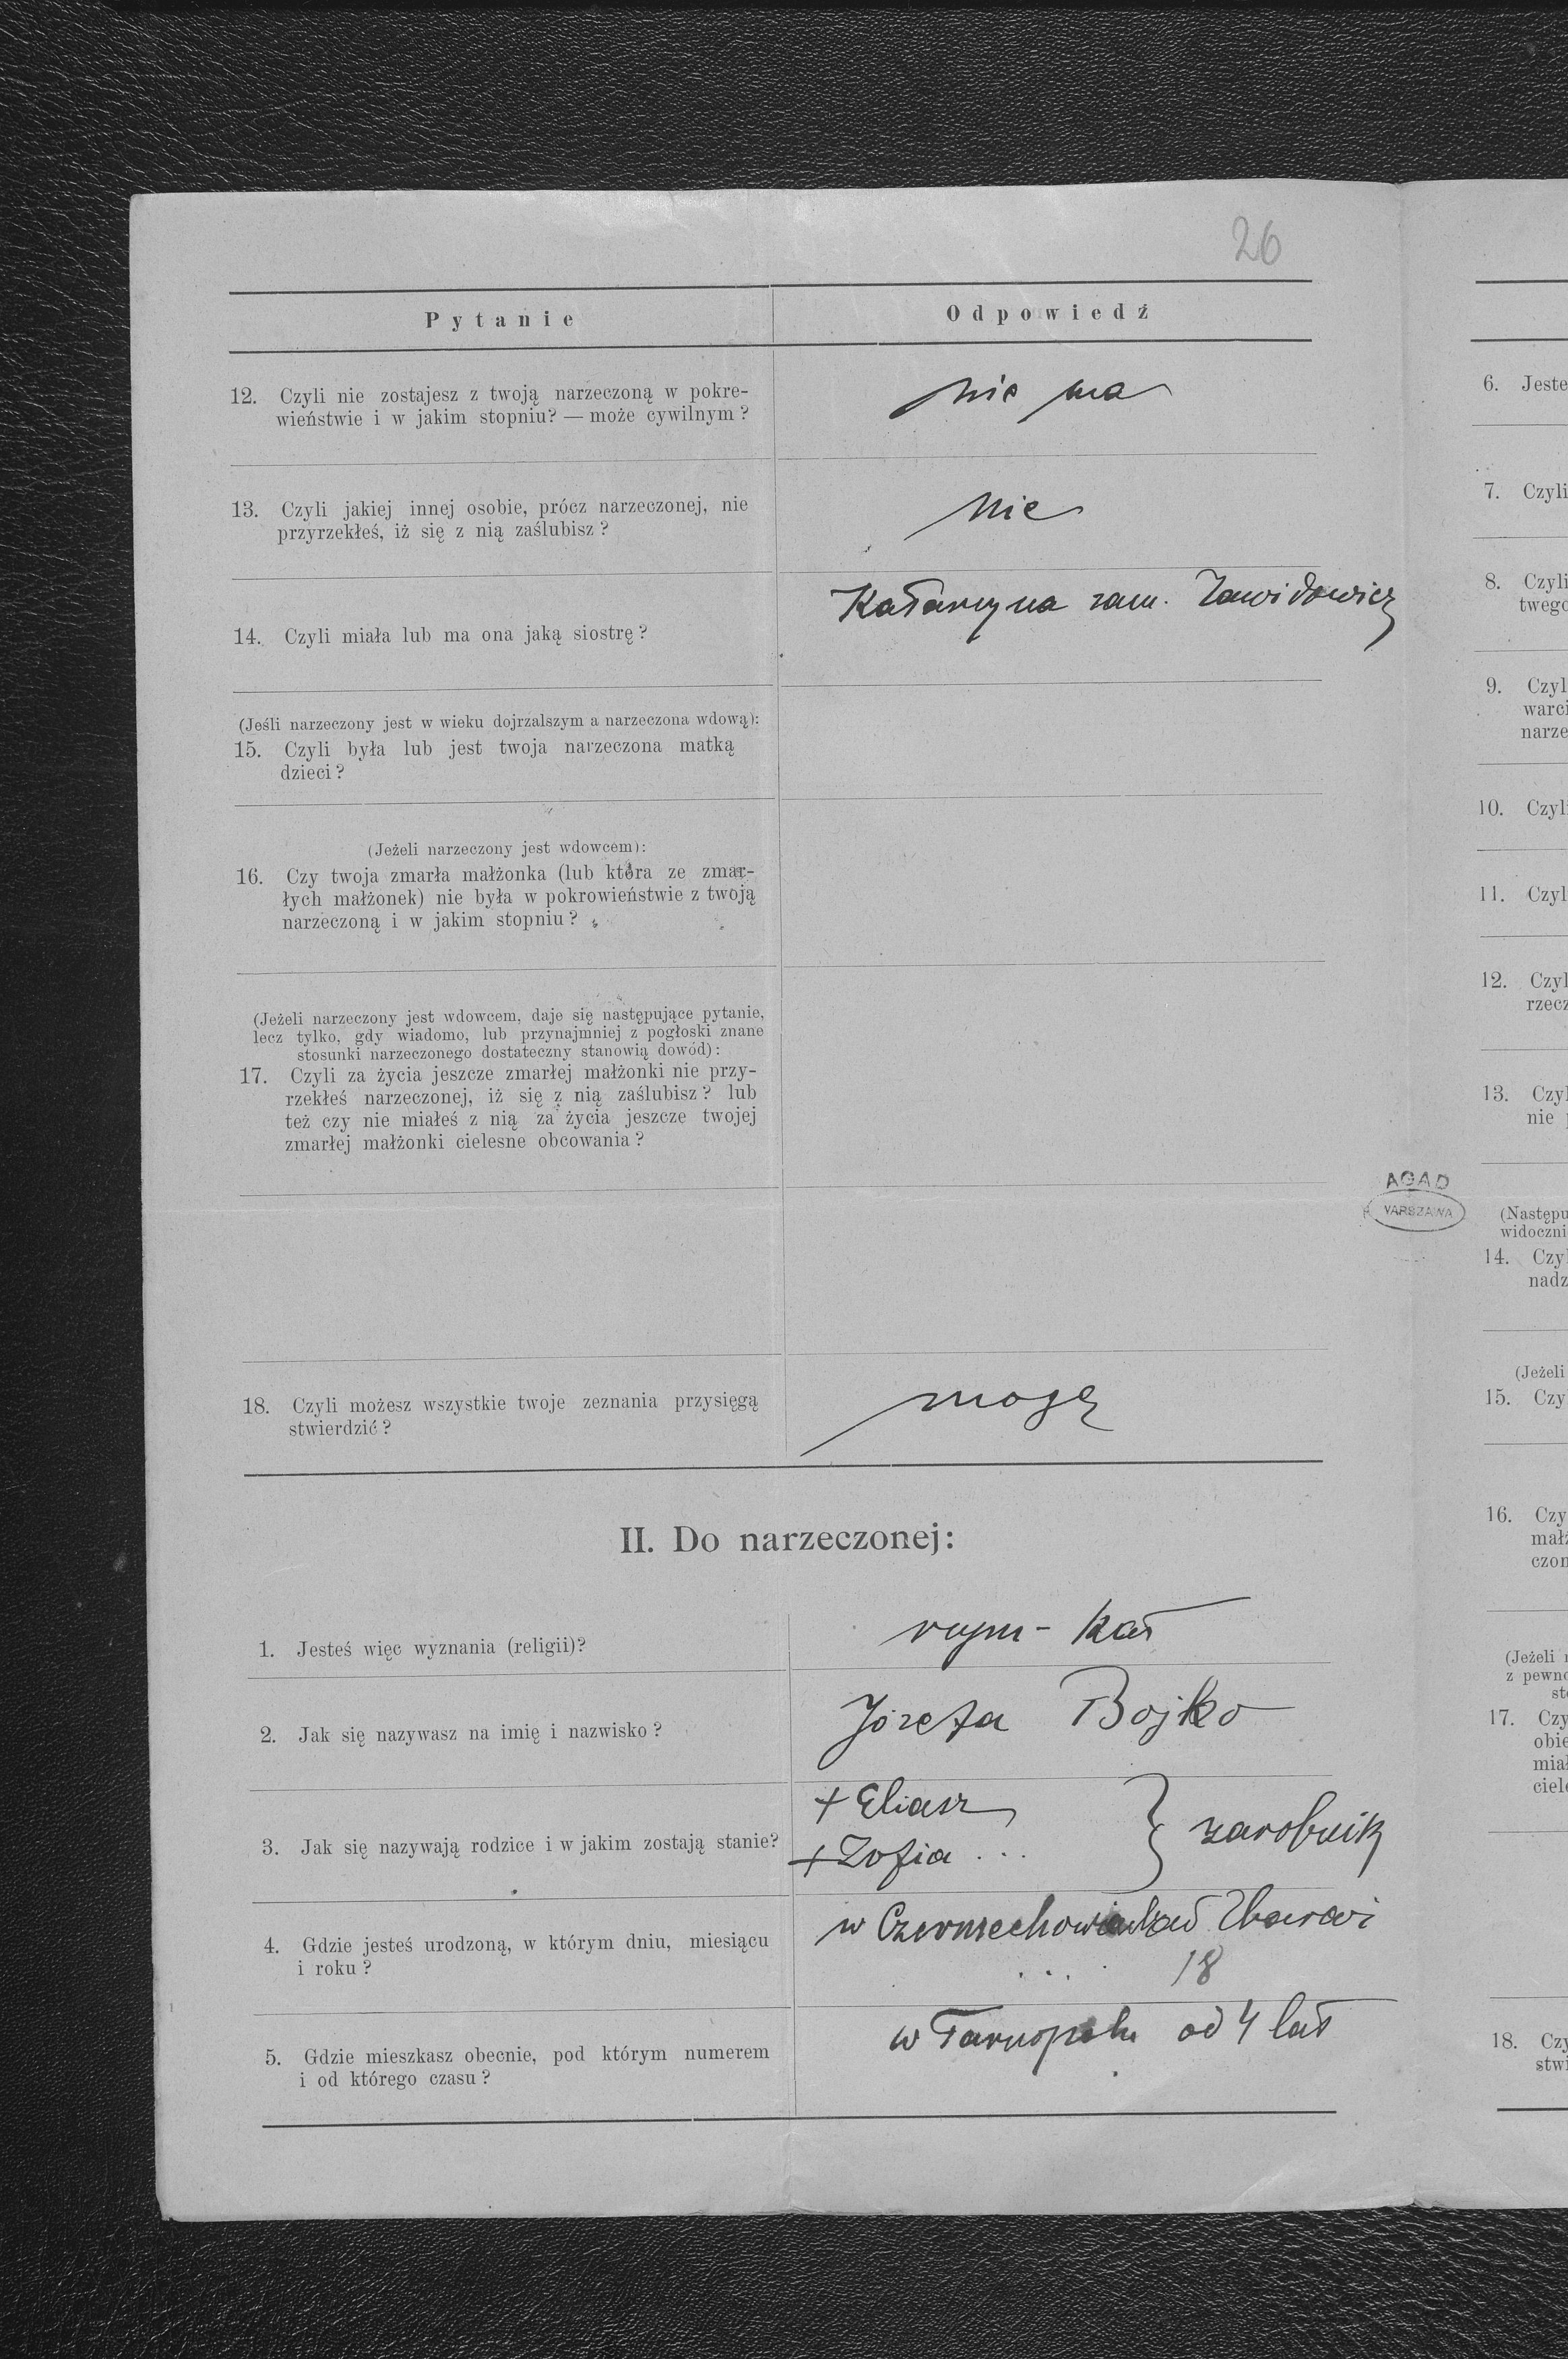 26
Pytanie
Odpowiedź
12. Czyli nie zostajesz z twoją narzeczoną w pokre-
wieństwie i w jakim stopniu? — może cywilnym?
nie ma
13. Czyli jakiej innej osobie, prócz narzeczonej, nie
przyrzekłeś, iż się z nią zaślubisz?
nie
14. Czyli miała lub ma ona jaką siostrę?
Katarzyna zam. Zawidowicz
(Jeśli narzeczony jest w wieku dojrzalszym a narzeczona wdową):
15. Czyli była lub jest twoja narzeczona matką
dzieci?
(Jeżeli narzeczony jest wdowcem):
16. Czy twoja zmarła małżonka (lub która ze zmar-
łych małżonek) nie była w pokrowieństwie z twoją
narzeczoną i w jakim stopniu?
(Jeżeli narzeczony jest wdowcem, daje się następujące pytanie,
lecz tylko, gdy wiadomo, lub przynajmniej z pogłoski znane
stosunki narzeczonego dostateczny stanowią dowód):
17. Czyli za życia jeszcze zmarłej małżonki nie przy-
rzekłeś narzeczonej, iż się z nią zaślubisz? lub
też czy nie miałeś z nią za życia jeszcze twojej
zmarłej małżonki cielesne obcowania?
18. Czyli możesz wszystkie twoje zeznania przysięgą
stwierdzić?
mogę
II. Do narzeczonej:
1. Jesteś więc wyznania (religii)?
rzym-kat
2. Jak się nazywasz na imię i nazwisko?
Józefa Bojko
3. Jak się nazywają rodzice i w jakim zostają stanie?
+ Eliasz
+ Zofia ...
} zarobnik
4. Gdzie jesteś urodzoną, w którym dniu, miesiącu
i roku?
w
... 18
5. Gdzie mieszkasz obecnie, pod którym numerem
i od którego czasu?
w Tarnopolu od 4 lat
AGAD
WARSZAWA
6. Jeste
7. Czyli
8. Czyli
twego
9. Czyl
warci
narze
10. Czyli
11. Czyl
12. Czyl
rzecz
13. Czyl
nie p
(Następu
widoczni
14. Czyl
nadz
(Jeżeli
15. Czy
16. Czy
małż
czon
(Jeżeli n
z pewno
sto
17. Czy
obie
miał
ciele
18. Czy
stwi